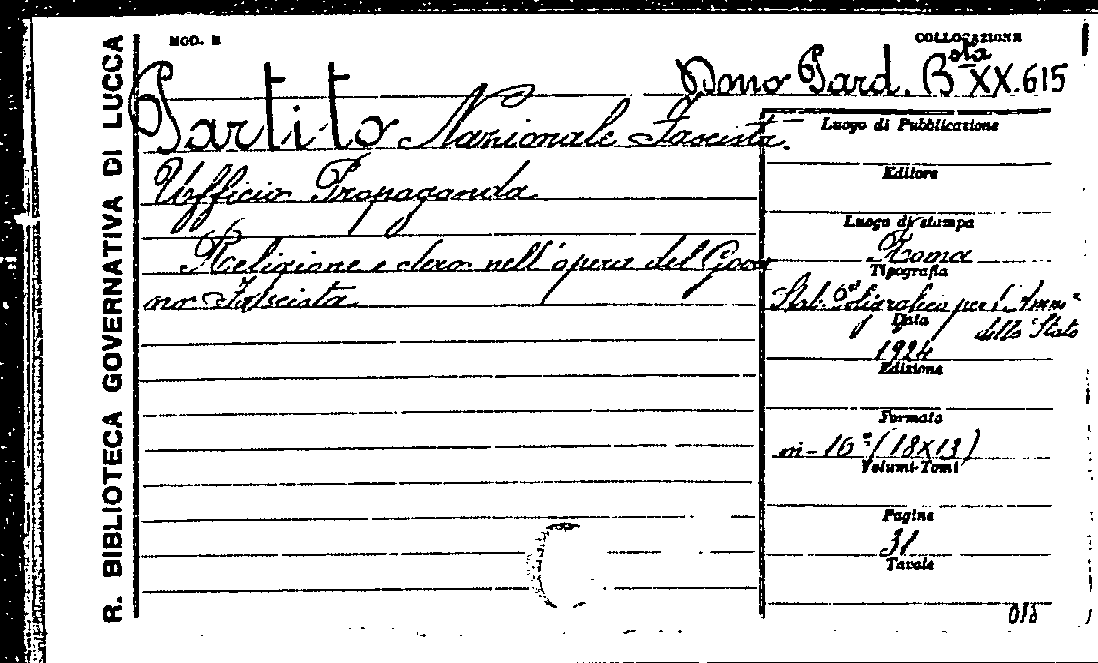 R. BIBLIOTECA GOVERNATIVA DI LUCCA
MOD. B
COLLOCAZIONE
Dono Pard. Bsta XX.615
Partito Nazionale Fascista.
Ufficio Propaganda
Religione e clero nell'opera del Gover
no Fascista
Luogo di Pubblicazione
Editore
Luogo di stampa
Roma
Tipografia
Stab. Poligrafico per l'Amm.e
dello Stato
Data
1924
Edizione
Formato
in-16º (18X13)
Volumi-Tomi
Pagine
31
Tavole